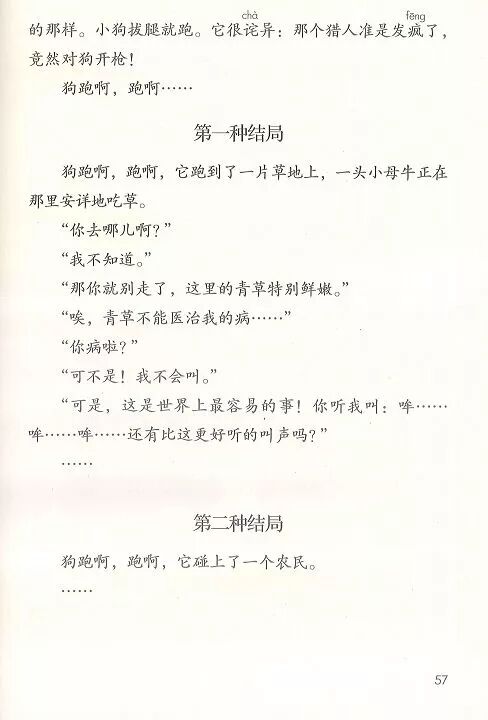 chà fēng
的那样。小狗拔腿就跑。它很诧异：那个猎人准是发疯了，
竟然对狗开枪！
狗跑啊，跑啊……
第一种结局
狗跑啊，跑啊，它跑到了一片草地上，一头小母牛正在
那里安详地吃草。
“你去哪儿啊？”
“我不知道。”
“那你就别走了，这里的青草特别鲜嫩。”
“唉，青草不能医治我的病……”
“你病啦？”
“可不是！我不会叫。”
“可是，这是世界上最容易的事！你听我叫：哞……
哞……哞……还有比这更好听的叫声吗？”
……
第二种结局
狗跑啊，跑啊，它碰上了一个农民。
……
57